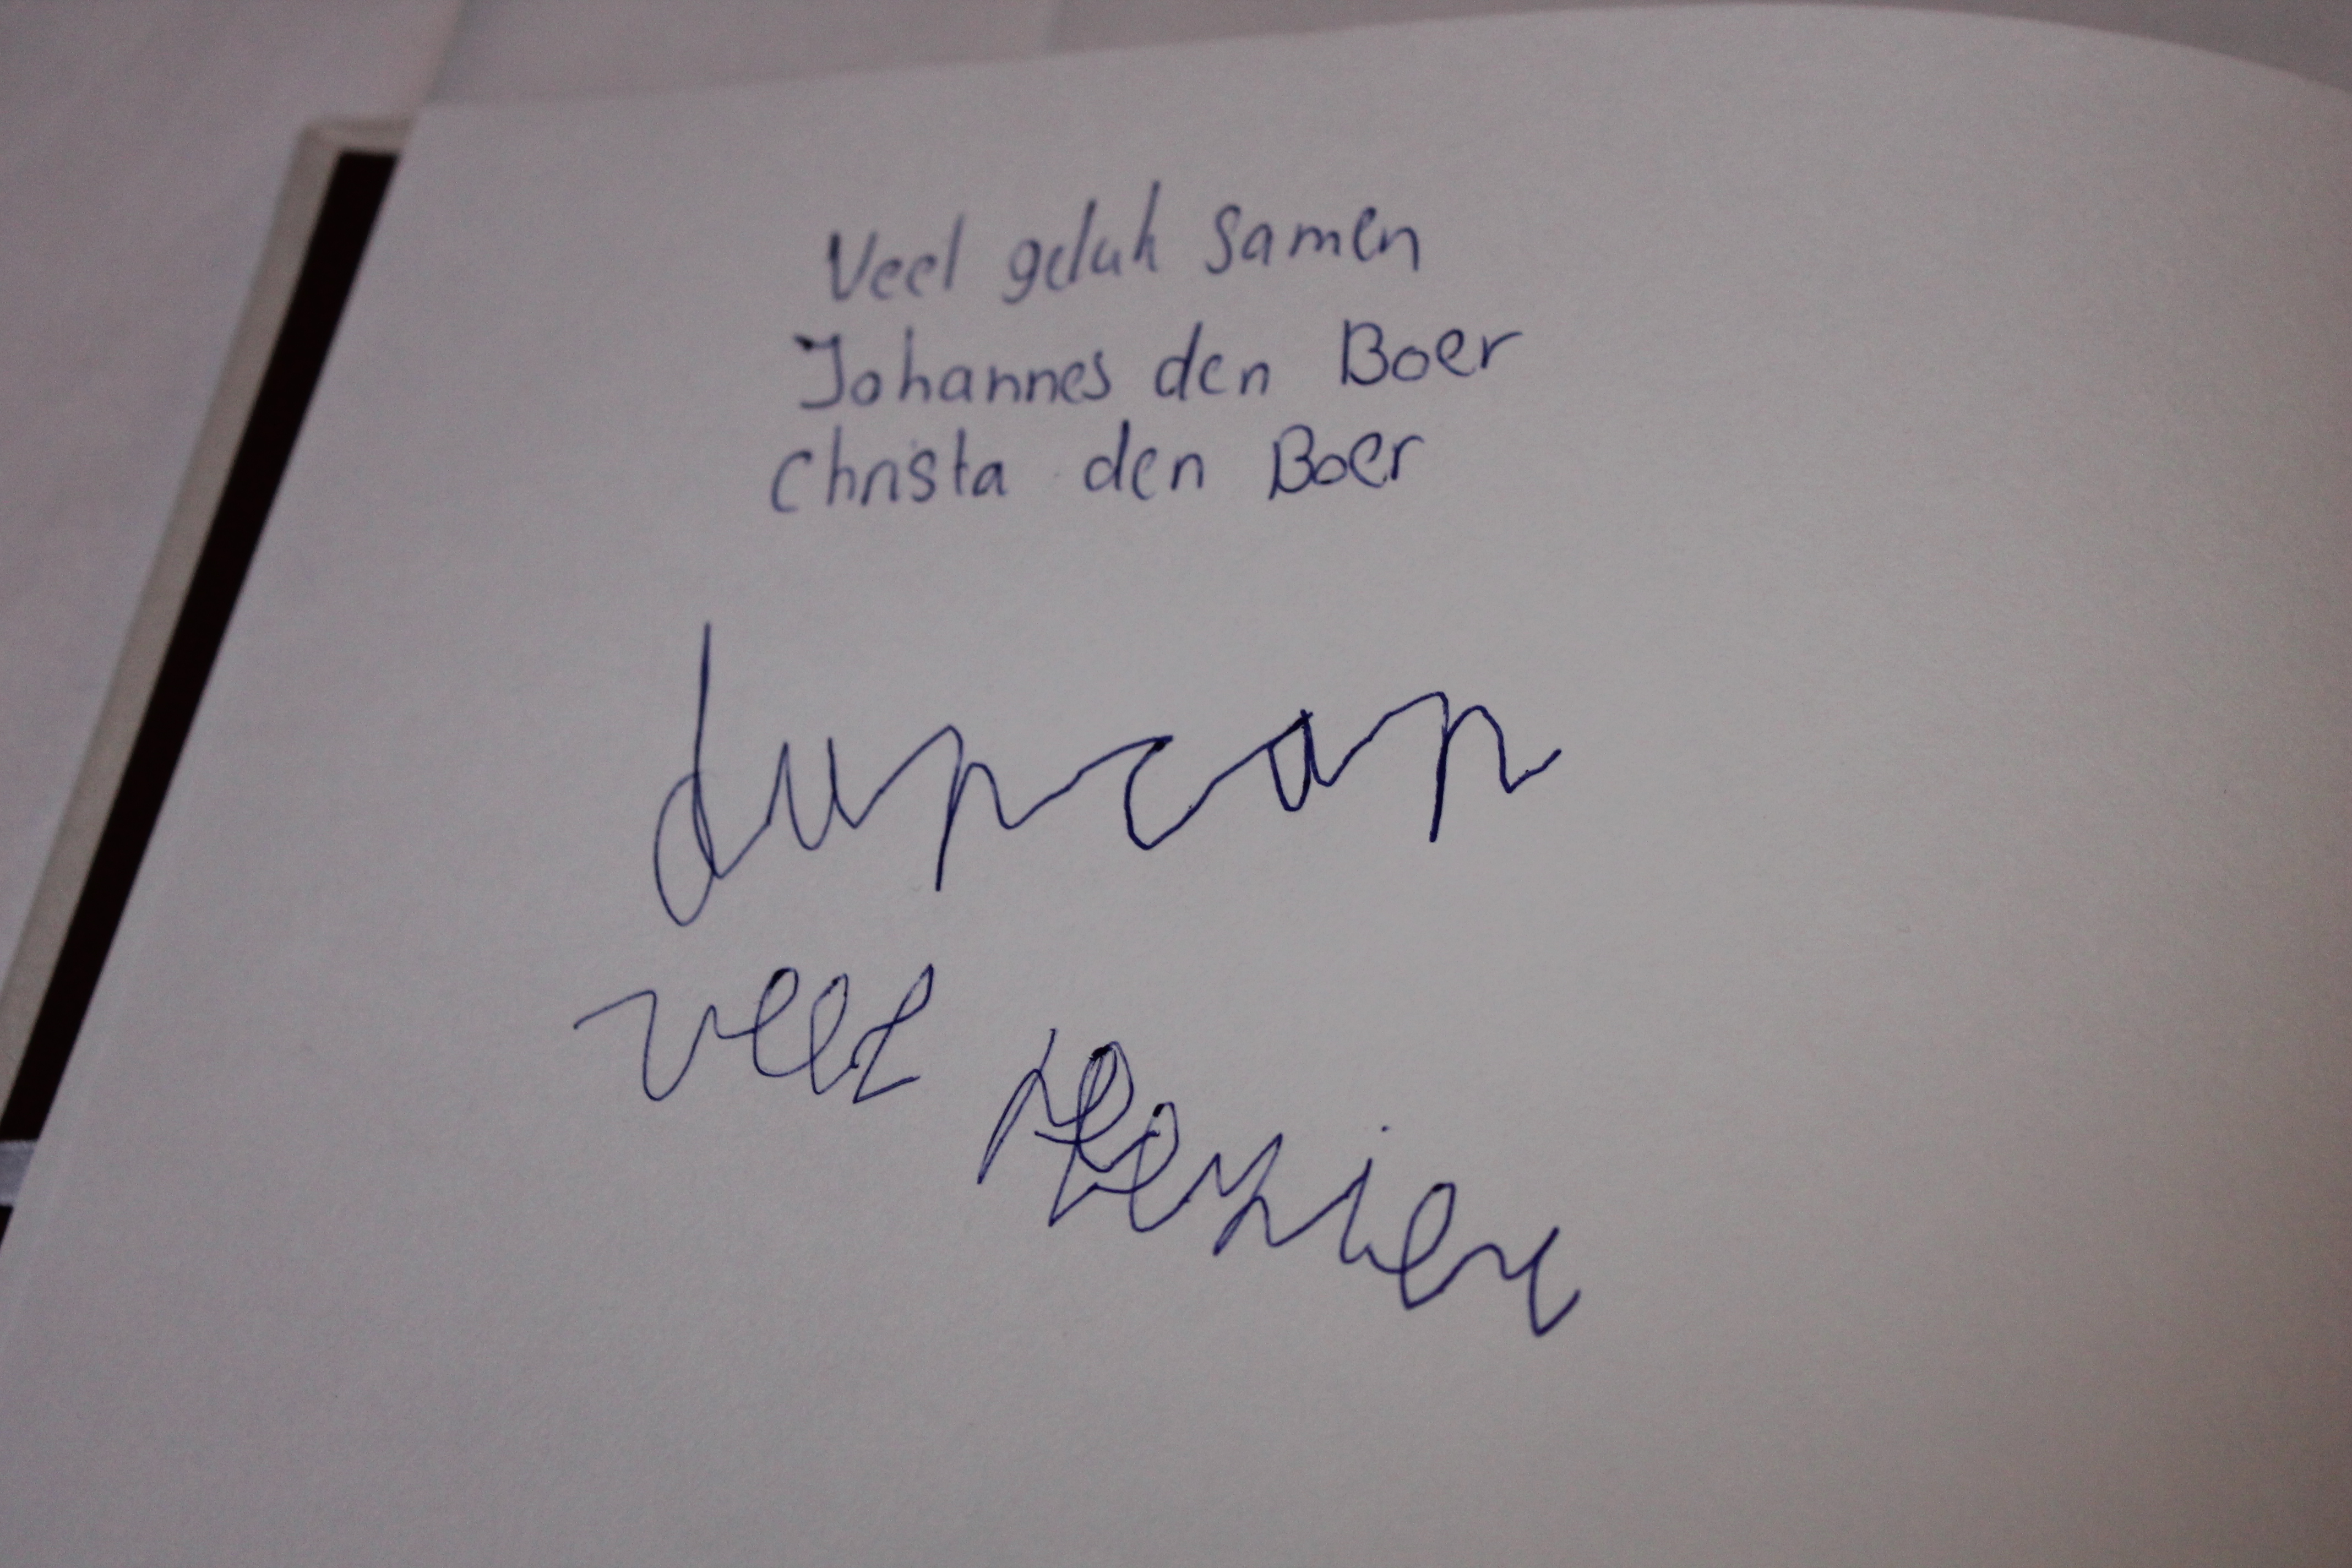 Veel geluk samen
Johannes den Boer
Christa den Boer
duncan
veel plezier